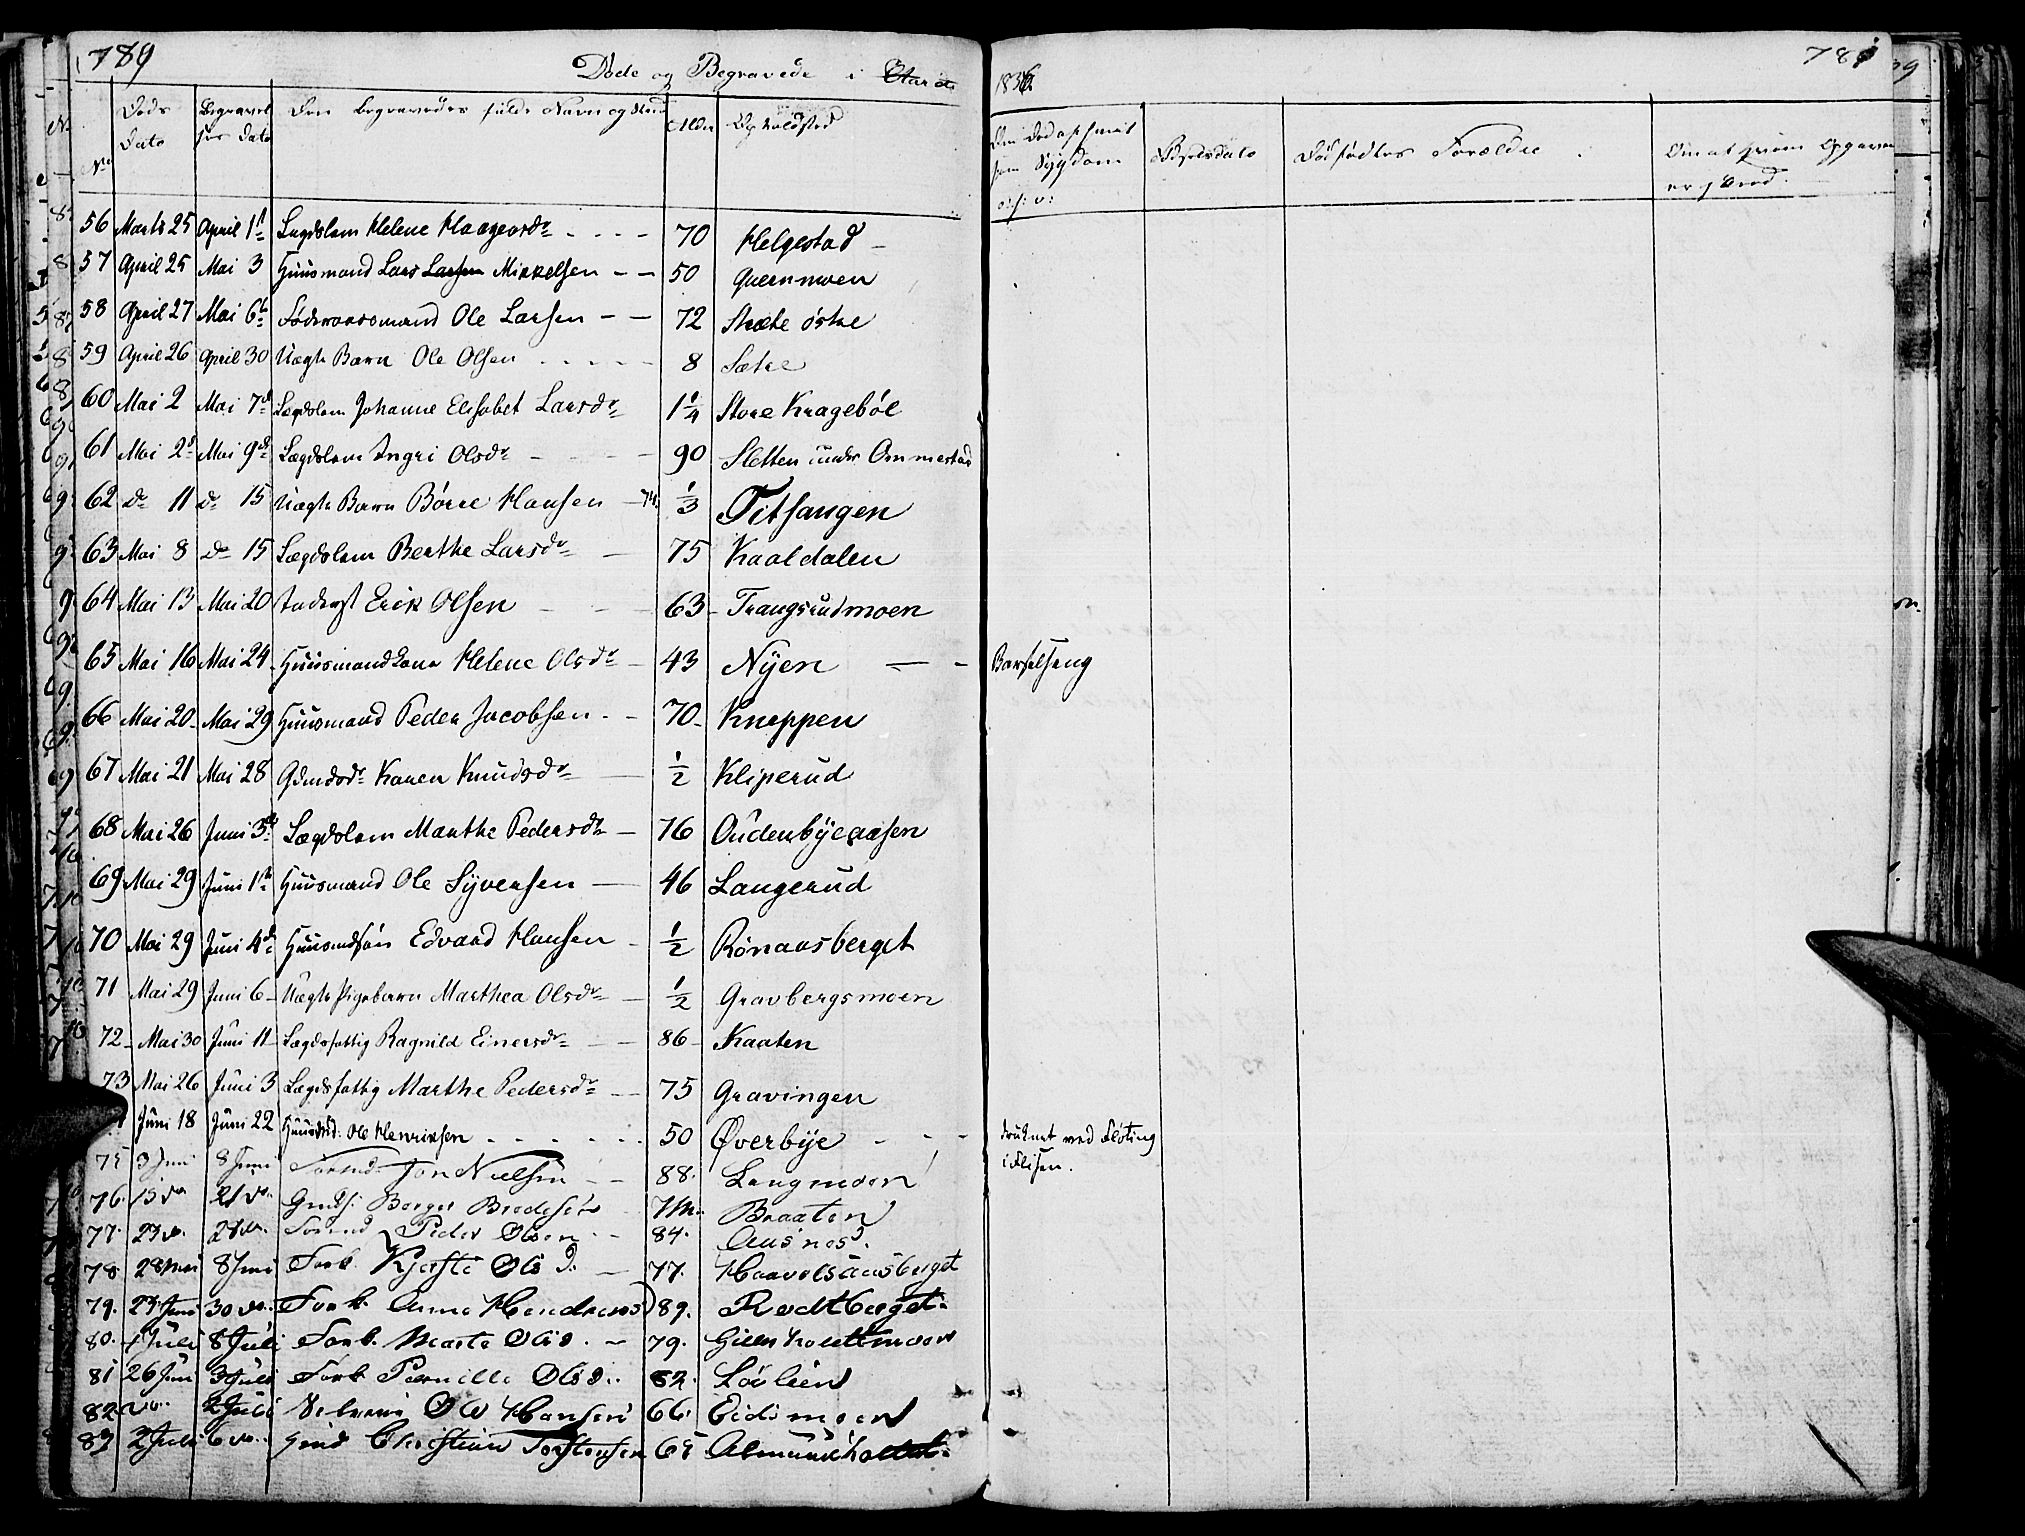 789
Døde og Begravede i
1836
789
No
Døds Dato
Begravelses Dato
Den begravedes fulde Navn og Stand
Alder
Opholdsted
Den Død afgjort som Sygdom o: s: v:
Fødselsdato
Dødfødtes Forældre
Om at Skeen Opgaven er skeed
56 Marts 25 April 1st Lægdslem Helene Haagensdr 70 Helgestad
57 April 25 Mai 3 Huusmand Lars Larsen Mikkelsen 50 Quernmoen
58 April 27 Mai 6te Føderaadsmand Ole Larsen 72 Stræte østre
59 April 26 April 30 Uægte Barn Ole Olsen 8 Sætre
60 Mai 2 Mai 7de Lægdslem Johanne Elisabet Larsdr 1 1/4 Store Kragebøl
61 Mai 2d Mai 9de Lægdslem Ingri Olsdr 90 Sletten under Ommestad
62 do 11 do 15 Uægte Barn Børre Hansen 1/3 Titsangen
63 Mai 8 do 15 Lægdslem Berthe Larsdr 75 Kaaldalen
64 Mai 13 Mai 20 Inderst Erik Olsen 63 Trangsrudmoen
65 Mai 16 Mai 24 Huusmandkone Helene Olsdr 43 Nyen Barselseng
66 Mai 20 Mai 29 Huusmand Peder Jacobsen 70 Knappen
67 Mai 21 Mai 28 Gdmdsdr Karen Knudsdr 1/2 Kliperud
68 Mai 26 Juni 3d Lægdslem Marthe Pedersdr 76 Oudenbyeaasen
69 Mai 29 Juni 1te Huusmand Ole Syversen 46 Langerud
70 Mai 29 Juni 4de Huusmdsøn Edvard Hansen 1/2 Rønaasberget
71 Mai 29 Juni 6 Uægte Pigebarn Marthea Olsdr 1/2 Gravbergsmoen
72 Mai 30 Juni 11 Lægdsfattig Ragnild Einersdr 86 Kaaten
73 Mai 26 Juni 3 Lægdsfattig Marthe Pedersdr 75 Gravingen
Juni 18 Juni 22 Ole Henriksen 50 Øverbye druknet ved Fløting i Flisen.
75 3 Juni 8 Juni Jon Nielsen 88. Langmoen
76. 15 do 21 do. Børger Bredesen 7 M. Braaten
77. 23 do. 27 do. Peder Olsen 84. Ausnes
78 28 Mai 8 Juni Fark. Kjersti Olsd. 77. Haavelsaasberget
79. 23 Juni 30 do. Fark. Anna Hendriksd 89. Rodtberget
80. 1 Juli 8 Juli Fark. Marte Olsd. 79.
81 26 Juni 3 Juli Fark Pernille Olsd. 82. Løvlien
82 do. 2 Juli Ole Hansen 66. Eidsmoen
83 2 Juli 6 do. Gmd Christian Torstensen 65 Almundholdet